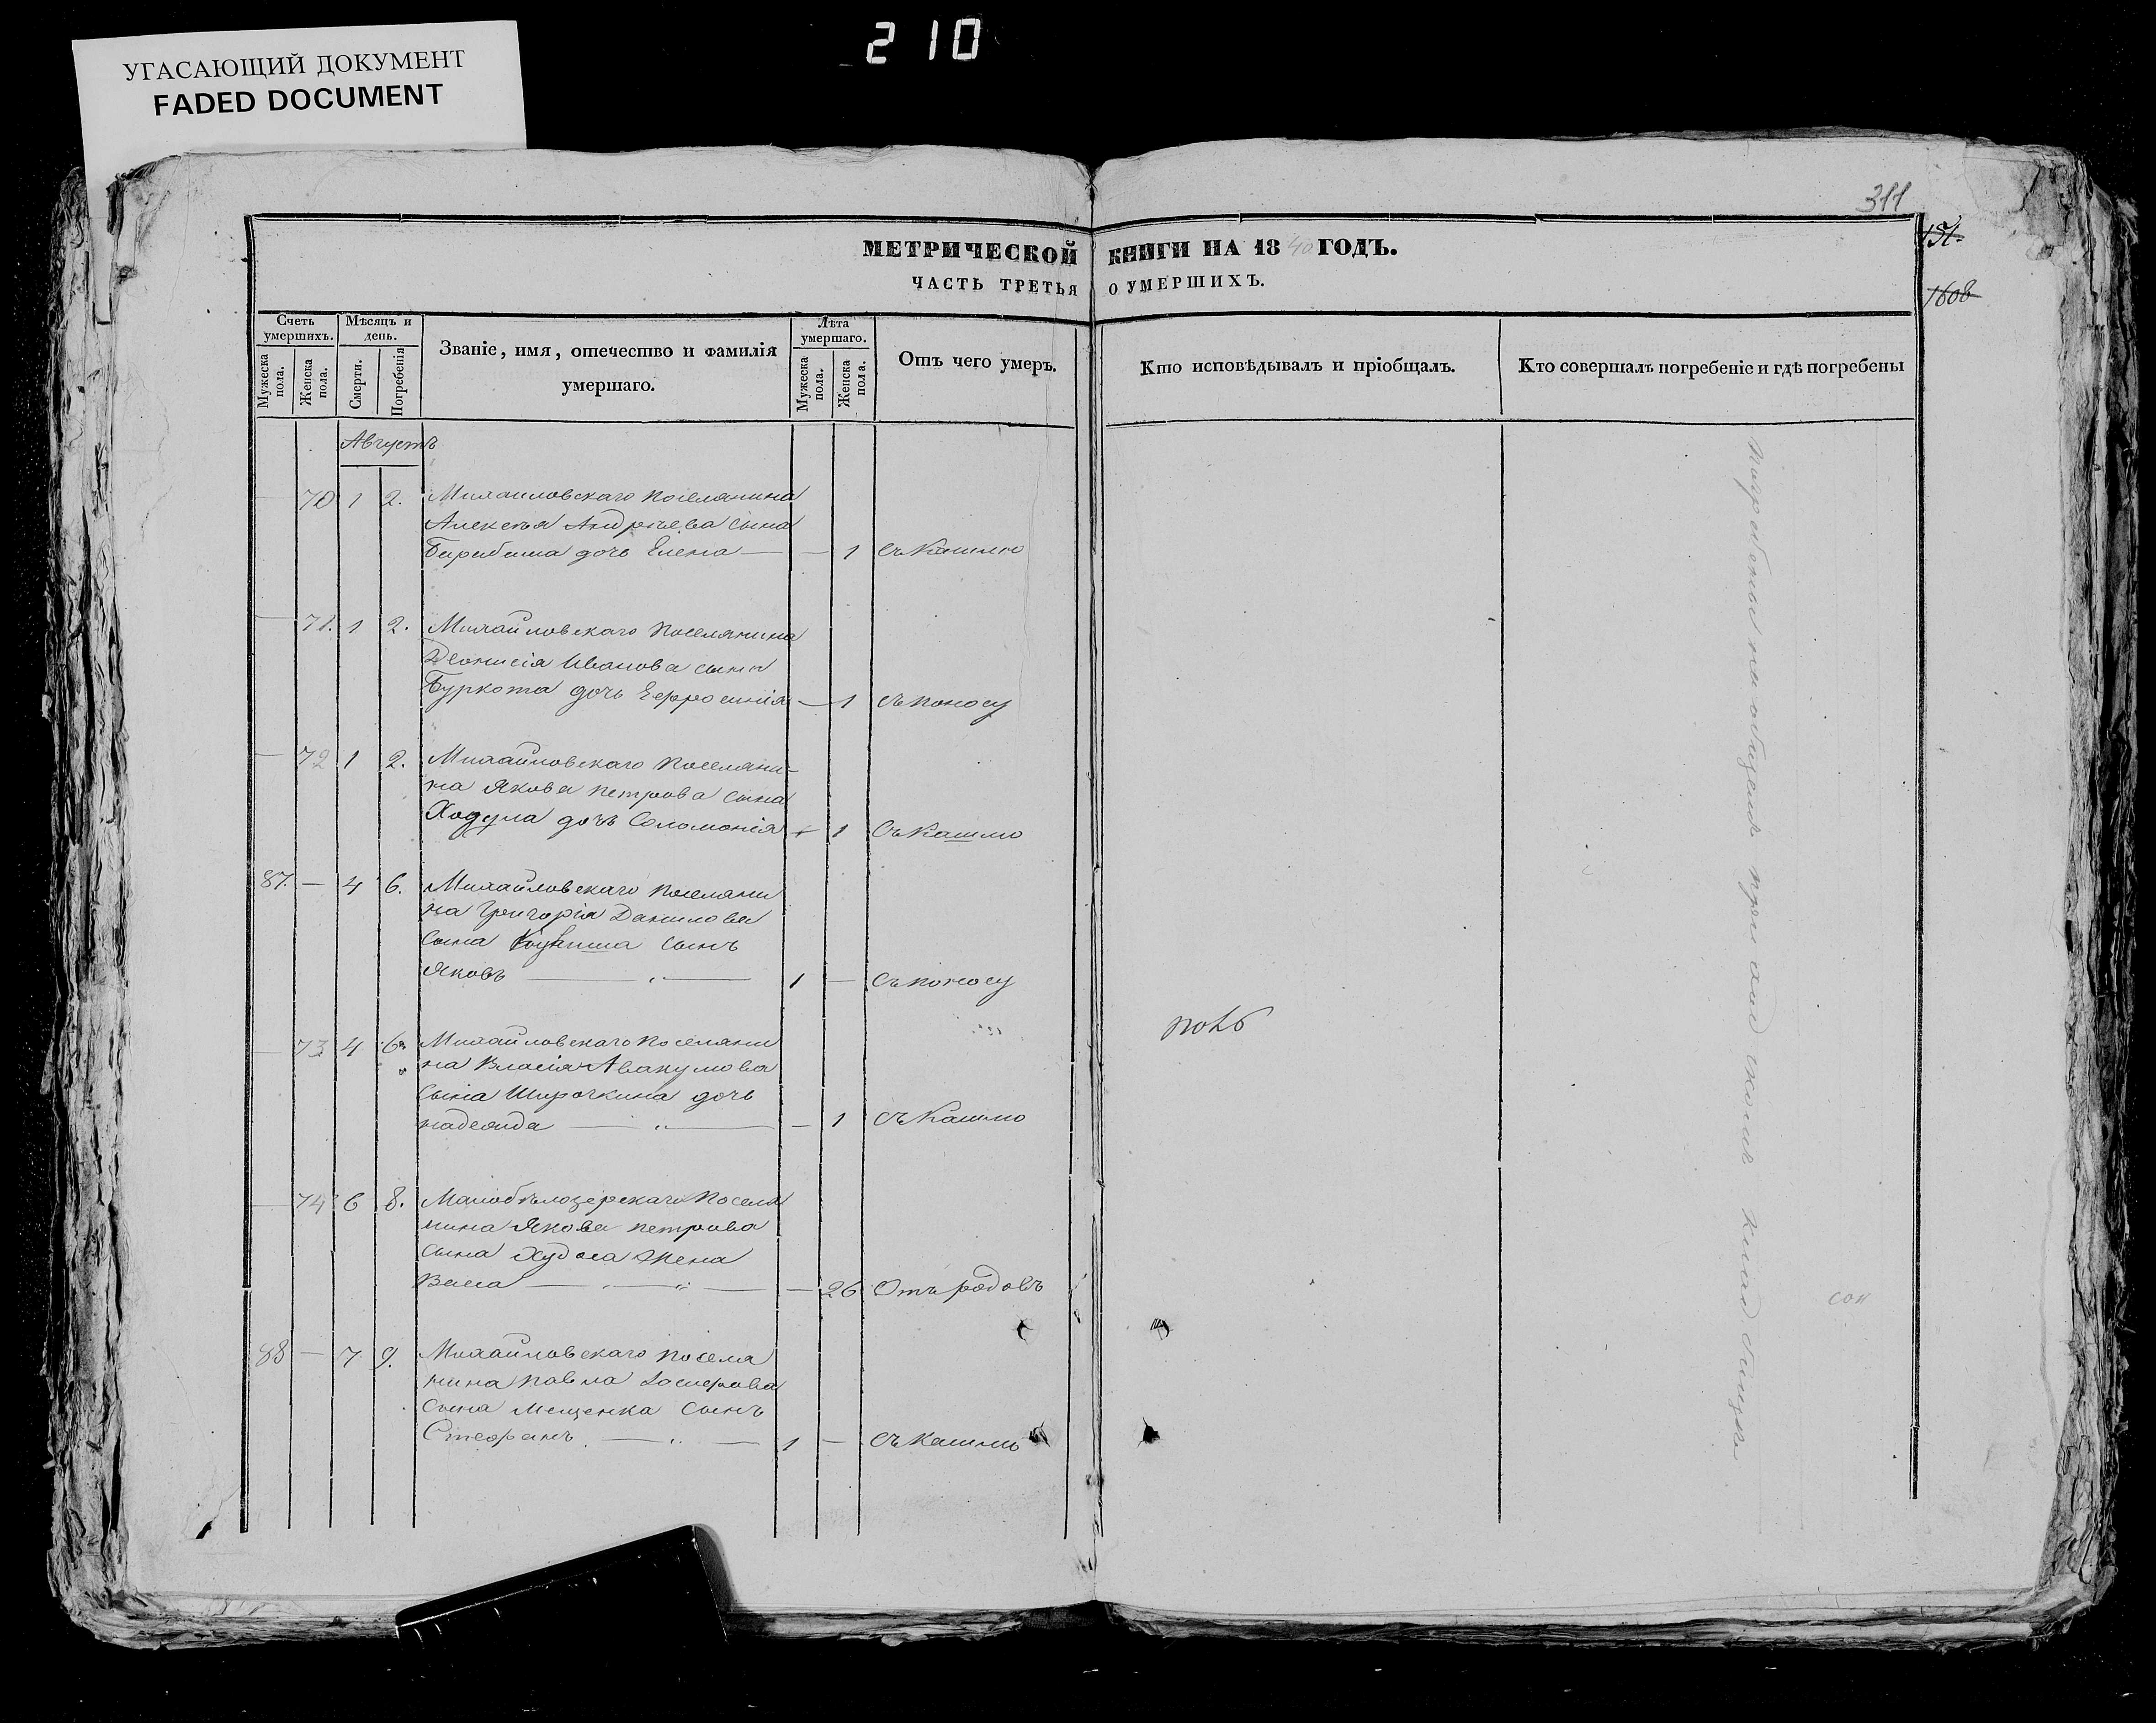 210
УГАСАЮЩИЙ ДОКУМЕНТ
FADED DOCUMENT
311
151.
1608
МЕТРИЧЕСКОЙ КНИГИ НА 1840 ГОДЪ.
ЧАСТЬ ТРЕТЬЯ О УМЕРШИХЪ.
Счетъ умершихъ.
Мужеска пола.
Женска пола.
Мѣсяцъ и день.
Смерти.
Погребенія
Званіе, имя, отечество и фамилія умершаго.
Лѣта умершаго.
Мужеска пола.
Женска пола.
Отъ чего умеръ.
Кто исповѣдывалъ и пріобщалъ.
Кто совершалъ погребеніе и гдѣ погребены
Августъ
— 70 1 2. Михаиловскаго поселянина
Алексѣя Андрѣева сына
дочь Елена — — 1 съ Кашлю
— 71. 1 2. Михайловскаго поселянина
Деонисія Иванова сына
Буркота дочь Ефросинія — 1 съ поносу
— 72 1 2. Михайловскаго поселяни-
на Якова Петрова сына
Ходула дочь Соломонія 1 съ Кашлю
87. — 4 6. Михайловскаго поселяни
на Григорія Данилова
сына сынъ
Яковъ — 1 — съ поносу
— 73 4 6. Михайловскаго поселяни
на Власія Авакумова
сына Широчкина дочь
— 1 съ Кашлю
— 74 6 8. Малобѣлозерскаго посели
нина Якова Петрова
сына Худола жена
Васса — — 26 Отъ родовъ
88 — 7 9. Михайловскаго поселя
нина Павла
сына Мещенка сынъ
Стефанъ — 1 — съ кашлю
погребены на общемъ приходскомъ кладбищѣ